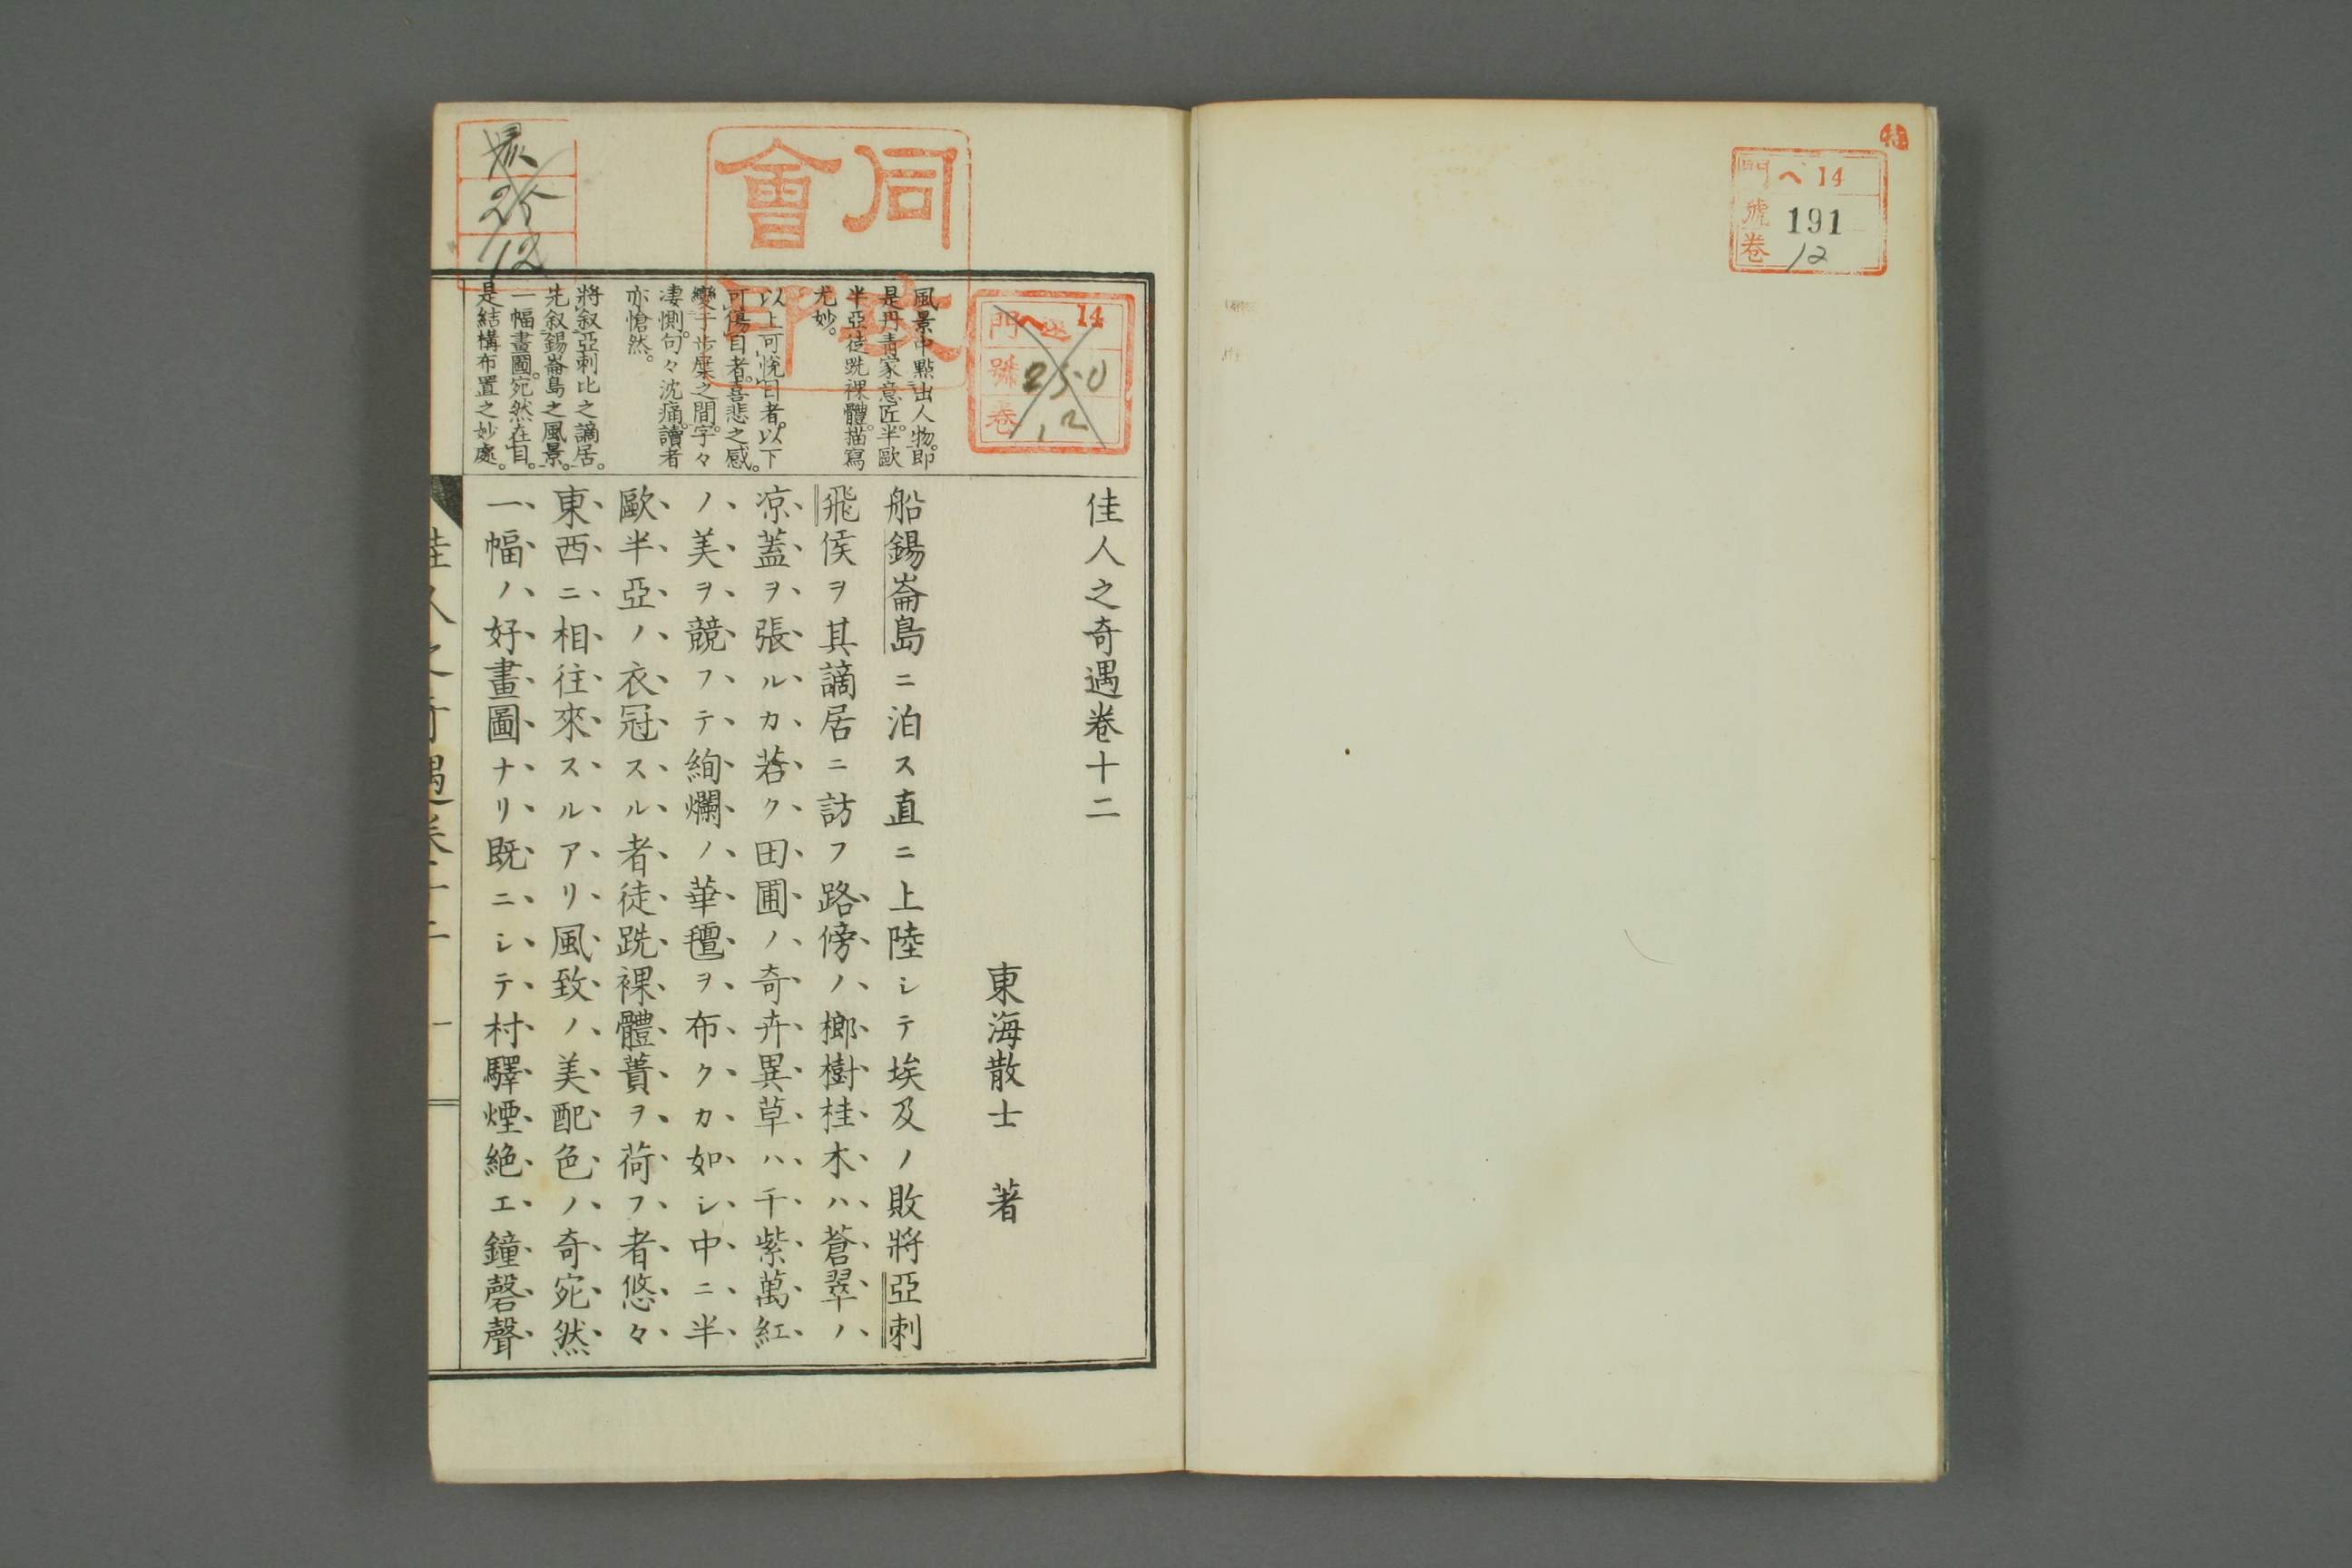 特
門 ヘ14
號 191
卷 12
佳人之奇遇卷十二
東海散士 著
船錫崙島ニ泊ス直ニ上陸シテ埃及ノ敗將亞刺
飛侯ヲ其謫居ニ訪フ路傍ノ榔樹桂木ハ蒼翠ノ
凉蓋ヲ張ルカ若ク田圃ノ奇卉異草ハ千紫萬紅
ノ美ヲ競フテ絢爛ノ華氊ヲ布クカ如シ中ニ半
歐半亞ノ衣冠スル者徒跣裸體蕢ヲ荷フ者悠々
東西ニ相往來スルアリ風致ノ美配色ノ奇宛然
一幅ノ好畫圖ナリ既ニシテ村驛煙絶エ鐘磬聲
風景中點出人物。即
是丹靑家意匠。半歐
半亞徒跣裸體。描寫
尤妙。
以上可悅目者。以下
可傷目者。喜悲之感。
變于步麋之間。字々
凄惻。句々沈痛。讀者
亦愴然。
將叙亞刺比之謫居。
先叙錫崙島之風景。
一幅畫圖。宛然在目。
是結構布置之妙處。
門 ヘ 14
號 250
卷 12
同
會
12
佳人之奇遇卷十二
一